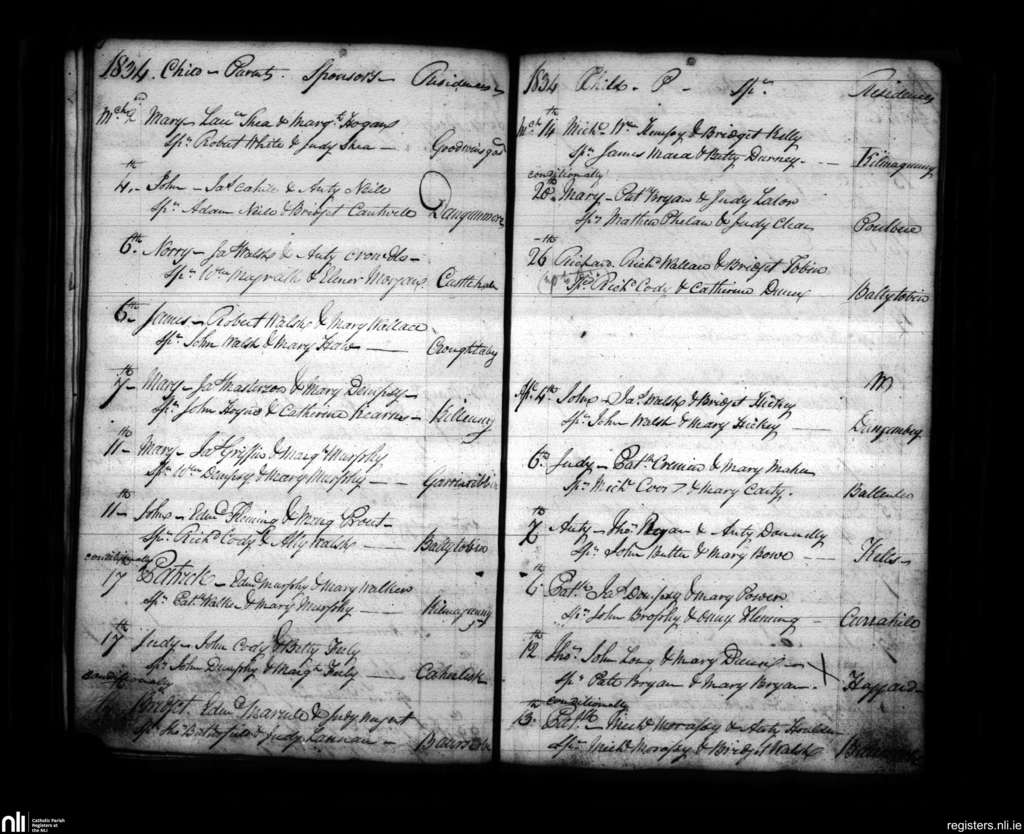 1834. Child – Parents. Sponsors – Residences
Mch 2nd Mary Laur Shea & Margt Hogan
Spr Robert White & Judy Shea – Goodwinsgad
4th – John – Jas Cahill & Anty Neill
Spr Adam Neill & Bridget Cantwell Dunganmore
6th Norry – Jas Walsh & Anty
Spr Wm Magrath & Elenor Morgans Castlehale
6th James – Robert Walsh & Mary Wallace
Spr John Walsh & Mary – Croughtaby
7th – Mary – Jas Masterson & Mary Dempsey –
Spr John Hoyne & Catherine Kearne – Killenny
11th – Mary – Jas Griffin & Margt Murphy
Spr Wm Dempsy & Mary Murphy – – Garrinribbin
11th – John – Edmd Fleming & Marg Prout –
Spr Richd Cody & Ally Walsh – Ballytobin
conditionally
17th Patrick – Edmd Murphy & Mary Walken
Spr Patk Walken & Mary Murphy – Kilmaganny
17th Judy – John Cody & Betty Fuly
Spr John Dunphy & Margt Fuly – Cahirlisk
conditionally
Robert Edmd & Judy Nugent
Spr Thos & Judy Lannan –
1834 Child. P – Spr Residences
Mch 14th Michl Wm & Bridget Kelly
Spr James Mara & Betty Durney. – Kilmaganny
conditionally
20th. Mary – Patk Bryan & Judy Lalor
Spr Mathew Phelan & Judy Clear
26th Richard. Richd Wallace & Bridget Tobin
Spr Richd Cody & Catherine Dunn Ballytobin
Apl 4th John – Jas Walsh & Bridget Hickey
Spr John Walsh & Mary Hickey –
6th Judy – Patk Cremin & Mary Maher
Spr Michl & Mary Carty. Ballinlee
7th Anty – Thos Regan & Anty Donnelly
Spr John Butler & Mary Bowe – Kells –
6th Patk Jas Dempsey & Mary Power
Spr John Brophy & Fleming – Currahill
12th Thos. John Long & Mary Dunn –
Spr Patt Bryan & Mary Bryan. Haggard –
conditionally
13th. Patk – Michl Morassy & Anty Houlden
Spr Michl Morassy & Bridget Walsh
nli
Catholic Parish
Registers at
the NLI
registers.nli.ie